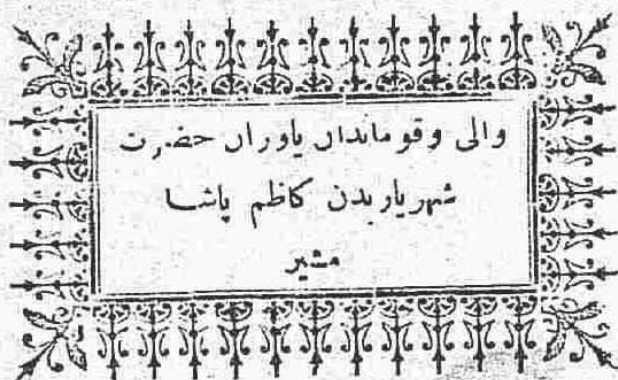 والی وقوماندان یاوران حضرت
شهریاریدن کاظم پاشا
مشیر